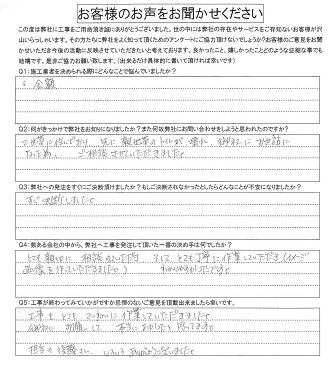 お客様のお声をお聞かせください
この度は弊社に工事をご用命頂き誠にありがとうございました。世の中には弊社の存在やサービスをご存知ないお客様が沢
山いらっしゃいます。その方たちに弊社をよく知って頂くためのアンケートにご協力頂けないでしょうか？お客様のご意見をお聞
かせいただき今後の活動に反映させていただきたいと考えております。良かったこと、嬉しかったことどのような些細な事でも
結構です。是非ご協力お願い致します。（出来るだけ具体的に書いて頂ければ幸いです）
Q1：施工業者を決められる際にどんなことで悩んでいましたか？
金額
Q2：何がきっかけで弊社をお知りになりましたか？また何故弊社にお問い合わせをしようと思われたのですか？
ご相談させていただきました。
Q3：弊社への発注をすぐにご決断頂けましたか？もしご決断されなかったとしたらどんなことが不安になりましたか？
すぐ決断しました。
Q4：数ある会社の中から、弊社へ工事を発注して頂いた一番の決め手は何でしたか？
とても親切に相談にのっていただき、そして、とても丁寧に作業していただき（イメージ
画像を作っていただきました。） わかりやすかったです。
Q5：工事が終わってみていかがですか忌憚のないご意見を頂戴出来ましたら幸いです。
工事も、とても ていねいに作業していただきました。
お願いして 本当によかったと思ってます。
担当の後藤さん、いろいろ ありがとうございました。